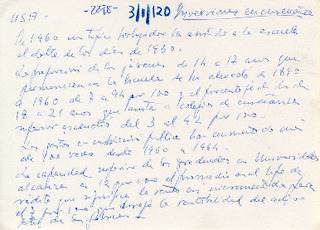 USA - 2298- 3/1/120 Inversiones en enseñanza
En 1960 un típico trabajador ha asistido a la escuela
el doble de los días de 1930.
La proporción de los jóvenes de 14 a 17 años que
permanecen en la escuela se ha elevado de 1890
a 1960 de 7 a 94 por 100 y el porcentaje de los de
18 a 21 años que asiste a colegios de enseñanza
superior del 3 al 42 por 100.
Los gastos en instrucción pública han aumentado más
de 100 veces desde 1960 a 1964.
La capacidad superior de los graduados en Universidades
alcanza en 12 por 100 el promedio en el
rédito que significa la renta
el 7 por 100 que arroja la rentabilidad